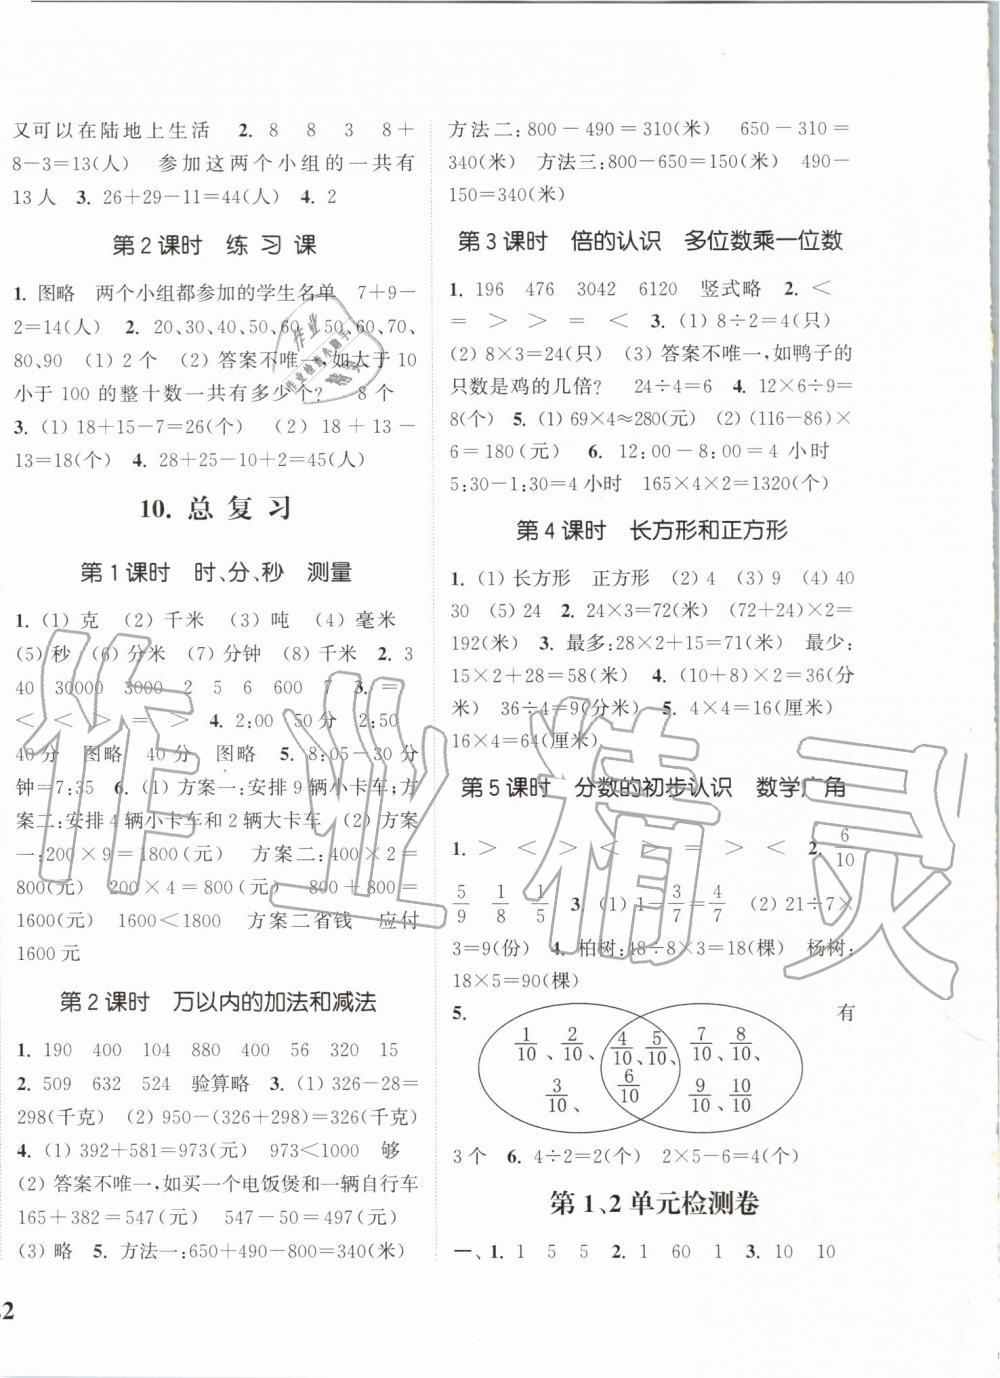 又可以在陆地上生活 2. 8 8 3 8＋
8－3＝13(人) 参加这两个小组的一共有
13人 3. 26＋29－11＝44(人) 4. 2
第2课时 练习课
1. 图略 两个小组都参加的学生名单 7＋9－
2＝14(人) 2. 20、30、40、50、60 50、60、70、
80、90 (1) 2个 (2) 答案不唯一,如大于10
小于100的整十数一共有多少个? 8个
3. (1) 18＋15－7＝26(个) (2) 18＋13－
13＝18(个) 4. 28＋25－10＋2＝45(人)
10. 总复习
第1课时 时、分、秒 测量
1. (1) 克 (2) 千米 (3) 吨 (4) 毫米
(5) 秒 (6) 分米 (7) 分钟 (8) 千米 2. 3
40 30000 3000 2 5 6 600 7 3. ＝
＜ ＜ ＞ ＝ ＞ 4. 2:00 50分 2:50
40分 图略 40分 图略 5. 8:05－30分
钟＝7:35 6. (1) 方案一:安排9辆小卡车;方
案二:安排4辆小卡车和2辆大卡车 (2) 方案
一:200×9＝1800(元) 方案二:400×2＝
800(元) 200×4＝800(元) 800＋800＝
1600(元) 1600＜1800 方案二省钱 应付
1600元
第2课时 万以内的加法和减法
1. 190 400 104 880 400 56 320 15
2. 509 632 524 验算略 3. (1) 326－28＝
298(千克) (2) 950－(326＋298)＝326(千克)
4. (1) 392＋581＝973(元) 973＜1000 够
(2) 答案不唯一,如买一个电饭煲和一辆自行车
165＋382＝547(元) 547－50＝497(元)
(3) 略 5. 方法一:650＋490－800＝340(米)
方法二:800－490＝310(米) 650－310＝
340(米) 方法三:800－650＝150(米) 490－
150＝340(米)
第3课时 倍的认识 多位数乘一位数
1. 196 476 3042 6120 竖式略 2. ＜
＝ ＞ ＞ ＝ ＜ 3. (1) 8÷2＝4(只)
(2) 8×3＝24(只) (3) 答案不唯一,如鸭子的
只数是鸡的几倍? 24÷4＝6 4. 12×6÷9＝
8(个) 5. (1) 69×4≈280(元) (2) (116－86)×
6＝180(元) 6. 12:00－8:00＝4小时
5:30－1:30＝4小时 165×2×4＝1320(个)
第4课时 长方形和正方形
1. (1) 长方形 正方形 (2) 4 (3) 9 (4) 40
30 (5) 24 2. 24×3＝72(米) (72＋24)×2＝
192(米) 3. 最多:28×2＋15＝71(米) 最少:
15×2＋28＝58(米) 4. (10＋8)×2＝36(分
米) 36÷4＝9(分米) 5. 4×4＝16(厘米)
16×4＝64(厘米)
第5课时 分数的初步认识 数学广角
1. ＞ ＜ ＞ ＜ ＞ ＝ ＞ ＜ 2. 6/10
5/9 1/8 1/5 3. (1) 1－3/7＝4/7 (2) 21÷7×
3＝9(份) 4. 柏树:48÷8×3＝18(棵) 杨树:
18×5＝90(棵)
5. 有
1/10、2/10、 4/10、5/10、 7/10、8/10、
3/10、 6/10 9/10、10/10
3个 6. 4÷2＝2(个) 2×5－6＝4(个)
第1、2单元检测卷
一、1. 1 5 5 2. 1 60 1 3. 10 10
2
作业精灵